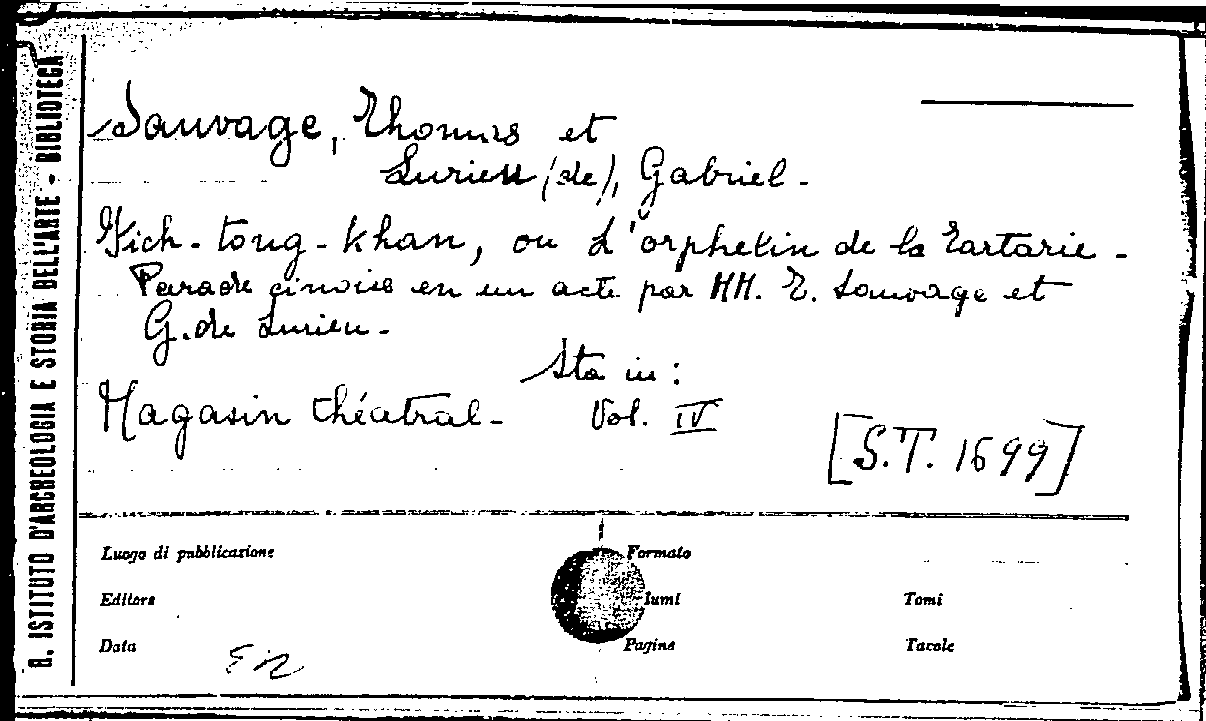 R. ISTITUTO D'ARCHEOLOGIA E STORIA DELL'ARTE - BIBLIOTECA
Sauvage, Thomas et
Lurieu (de), Gabriel.
-tong-khan, ou L'orphelin de la Tartarie.
Parade cinoise en un acte par MM. T. Sauvage et
G. de Lurieu.
Sta in:
Magasin théatral. Vol. IV
[S.T. 1699]
Luogo di pubblicazione Formato
Editore lumi Tomi
Data Pagine Tavole